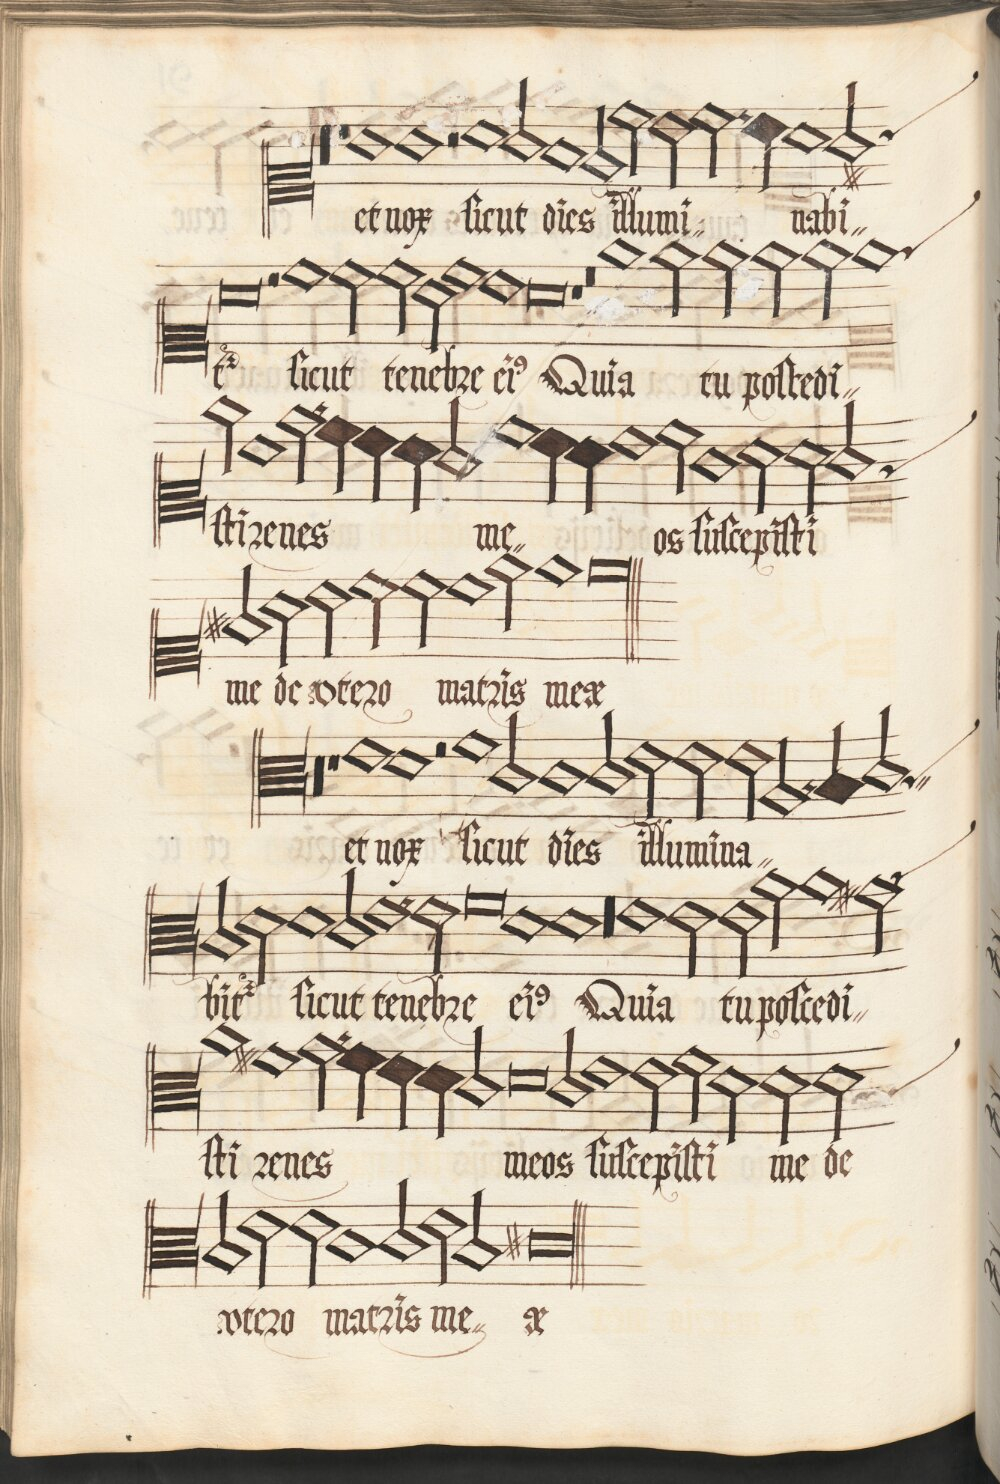 et nox sicut dies illumi„ nabi„
t̃ sicut tenebre ei⁹ Quia tu possedi„
sti renes me„ os suscepisti
me de vtero matris meæ
et nox sicut dies illumina„
bit̃ sicut tenebre ei⁹ Quia tu possedi„
sti renes meos suscepisti me de
vtero matris me„ æ